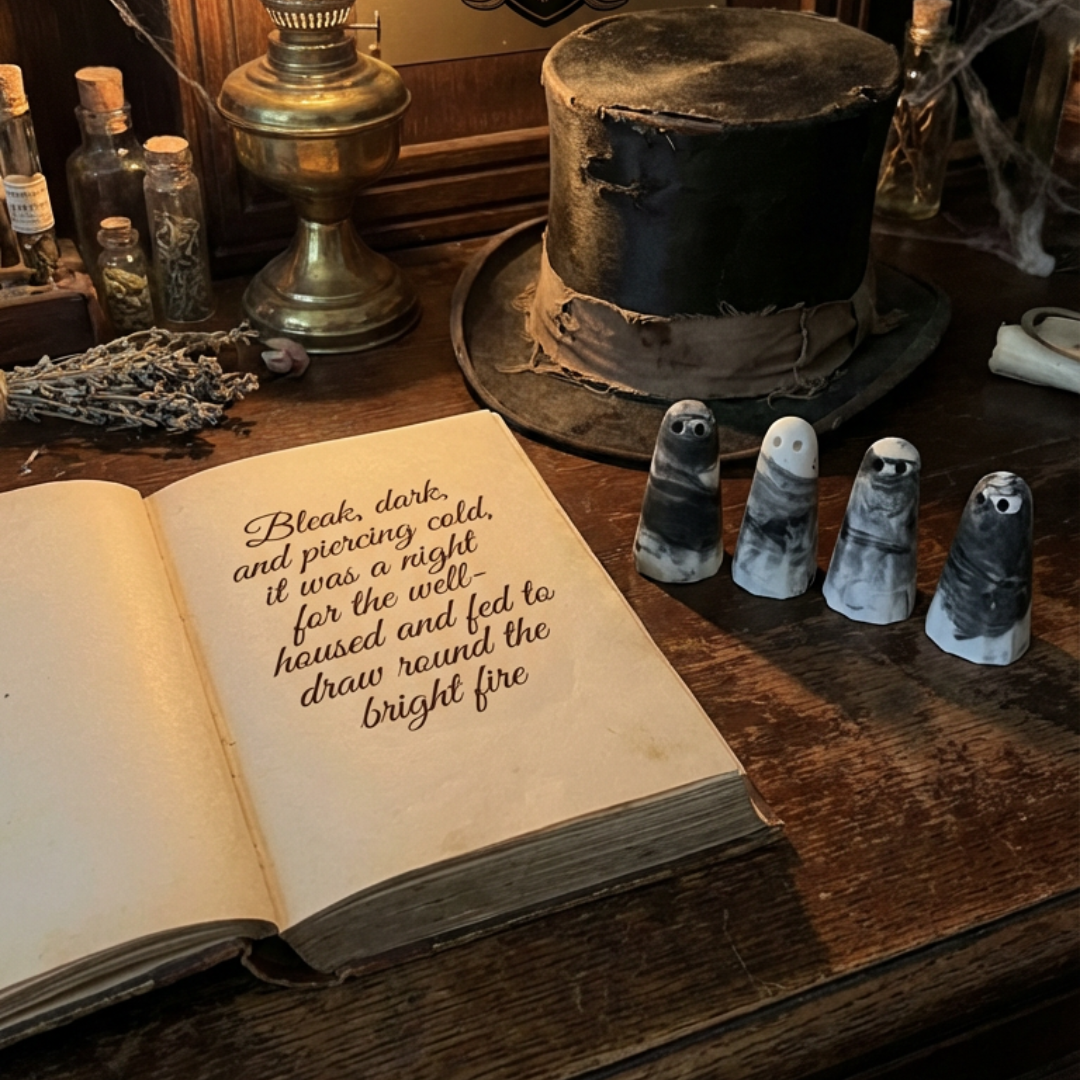 Bleak, dark,
and piercing cold,
it was a night
for the well-
housed and fed to
draw round the
bright fire